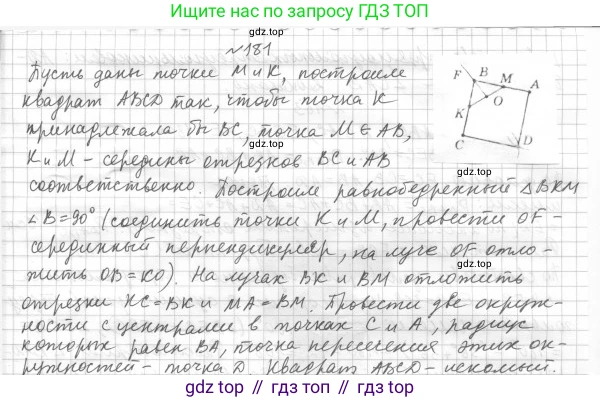 Ищите нас по запросу ГДЗ ТОП
№181
Пусть даны точки М и К, построим
квадрат ABCD так, чтобы точка К
принадлежала бы BC, точка M ∈ AB,
K и M – середины отрезков BC и AB
соответственно. Построим равнобедренный △BKM
∠B=90° (соединить точки K и M, провести OF –
серединный перпендикуляр, на луче OF отло-
жить OB = KO). На лучах BK и BM отложить
отрезки KC=BK и MA=BM. Провести две окруж-
ности с центрами в точках C и A, радиус
которых равен BA, точка пересечения этих ок-
ружностей – точка D. Квадрат ABCD – искомый.
F B M A
K O
C D
gdz top // гдз топ // gdz.top